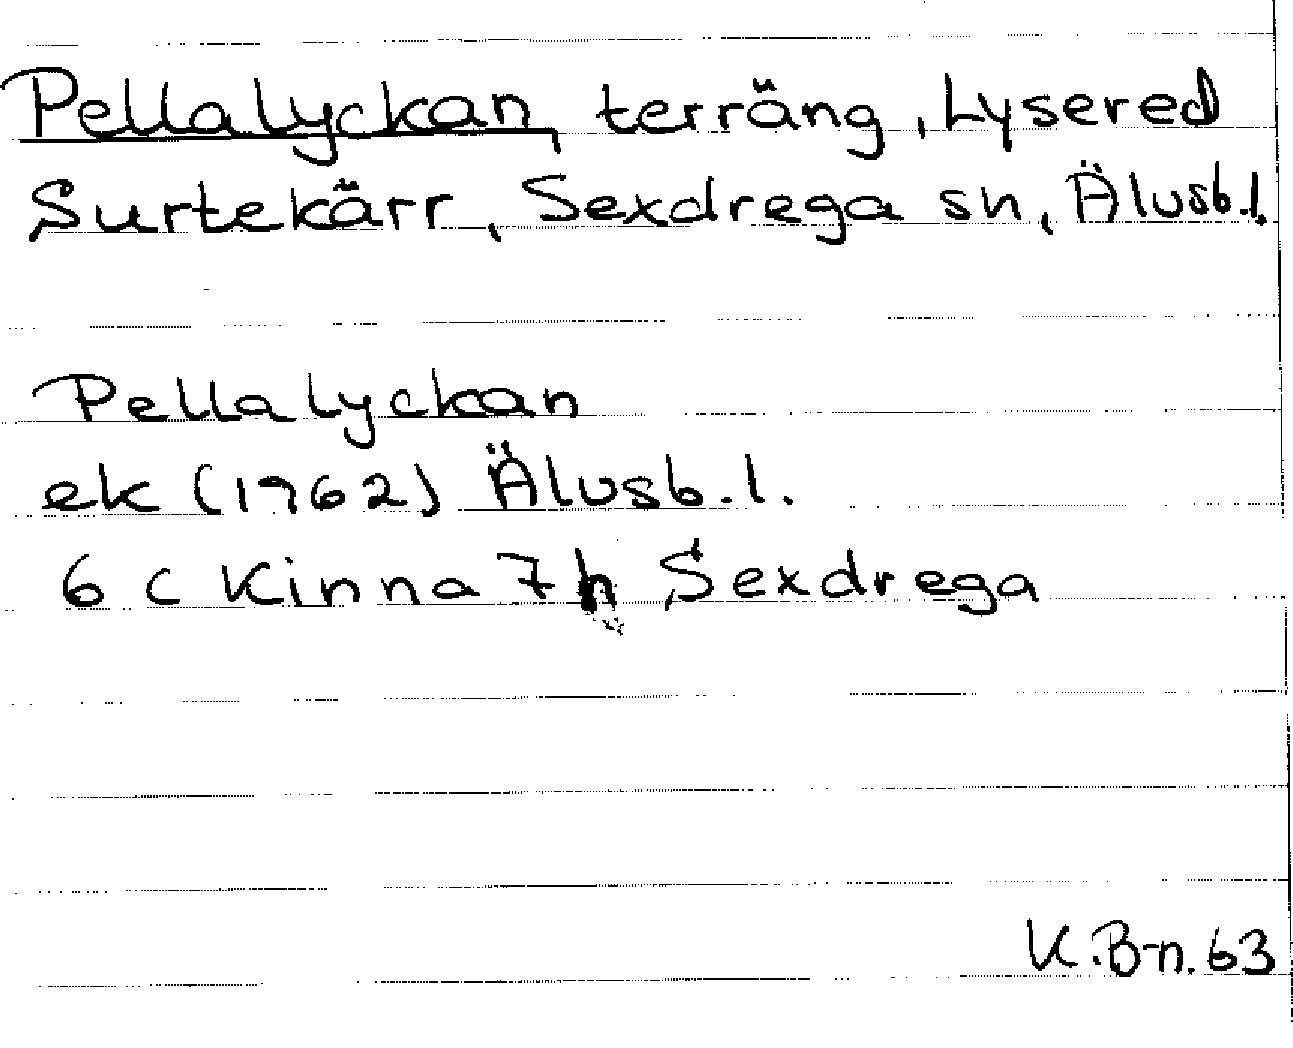 Pellalyckan, terräng, Lysered
Surtekärr, Sexdrega sn, Älvsb.l.
Pellalyckan
ek (1962) Älvsb.l.
6 C Kinna 7 h Sexdrega
K.B-n. 63